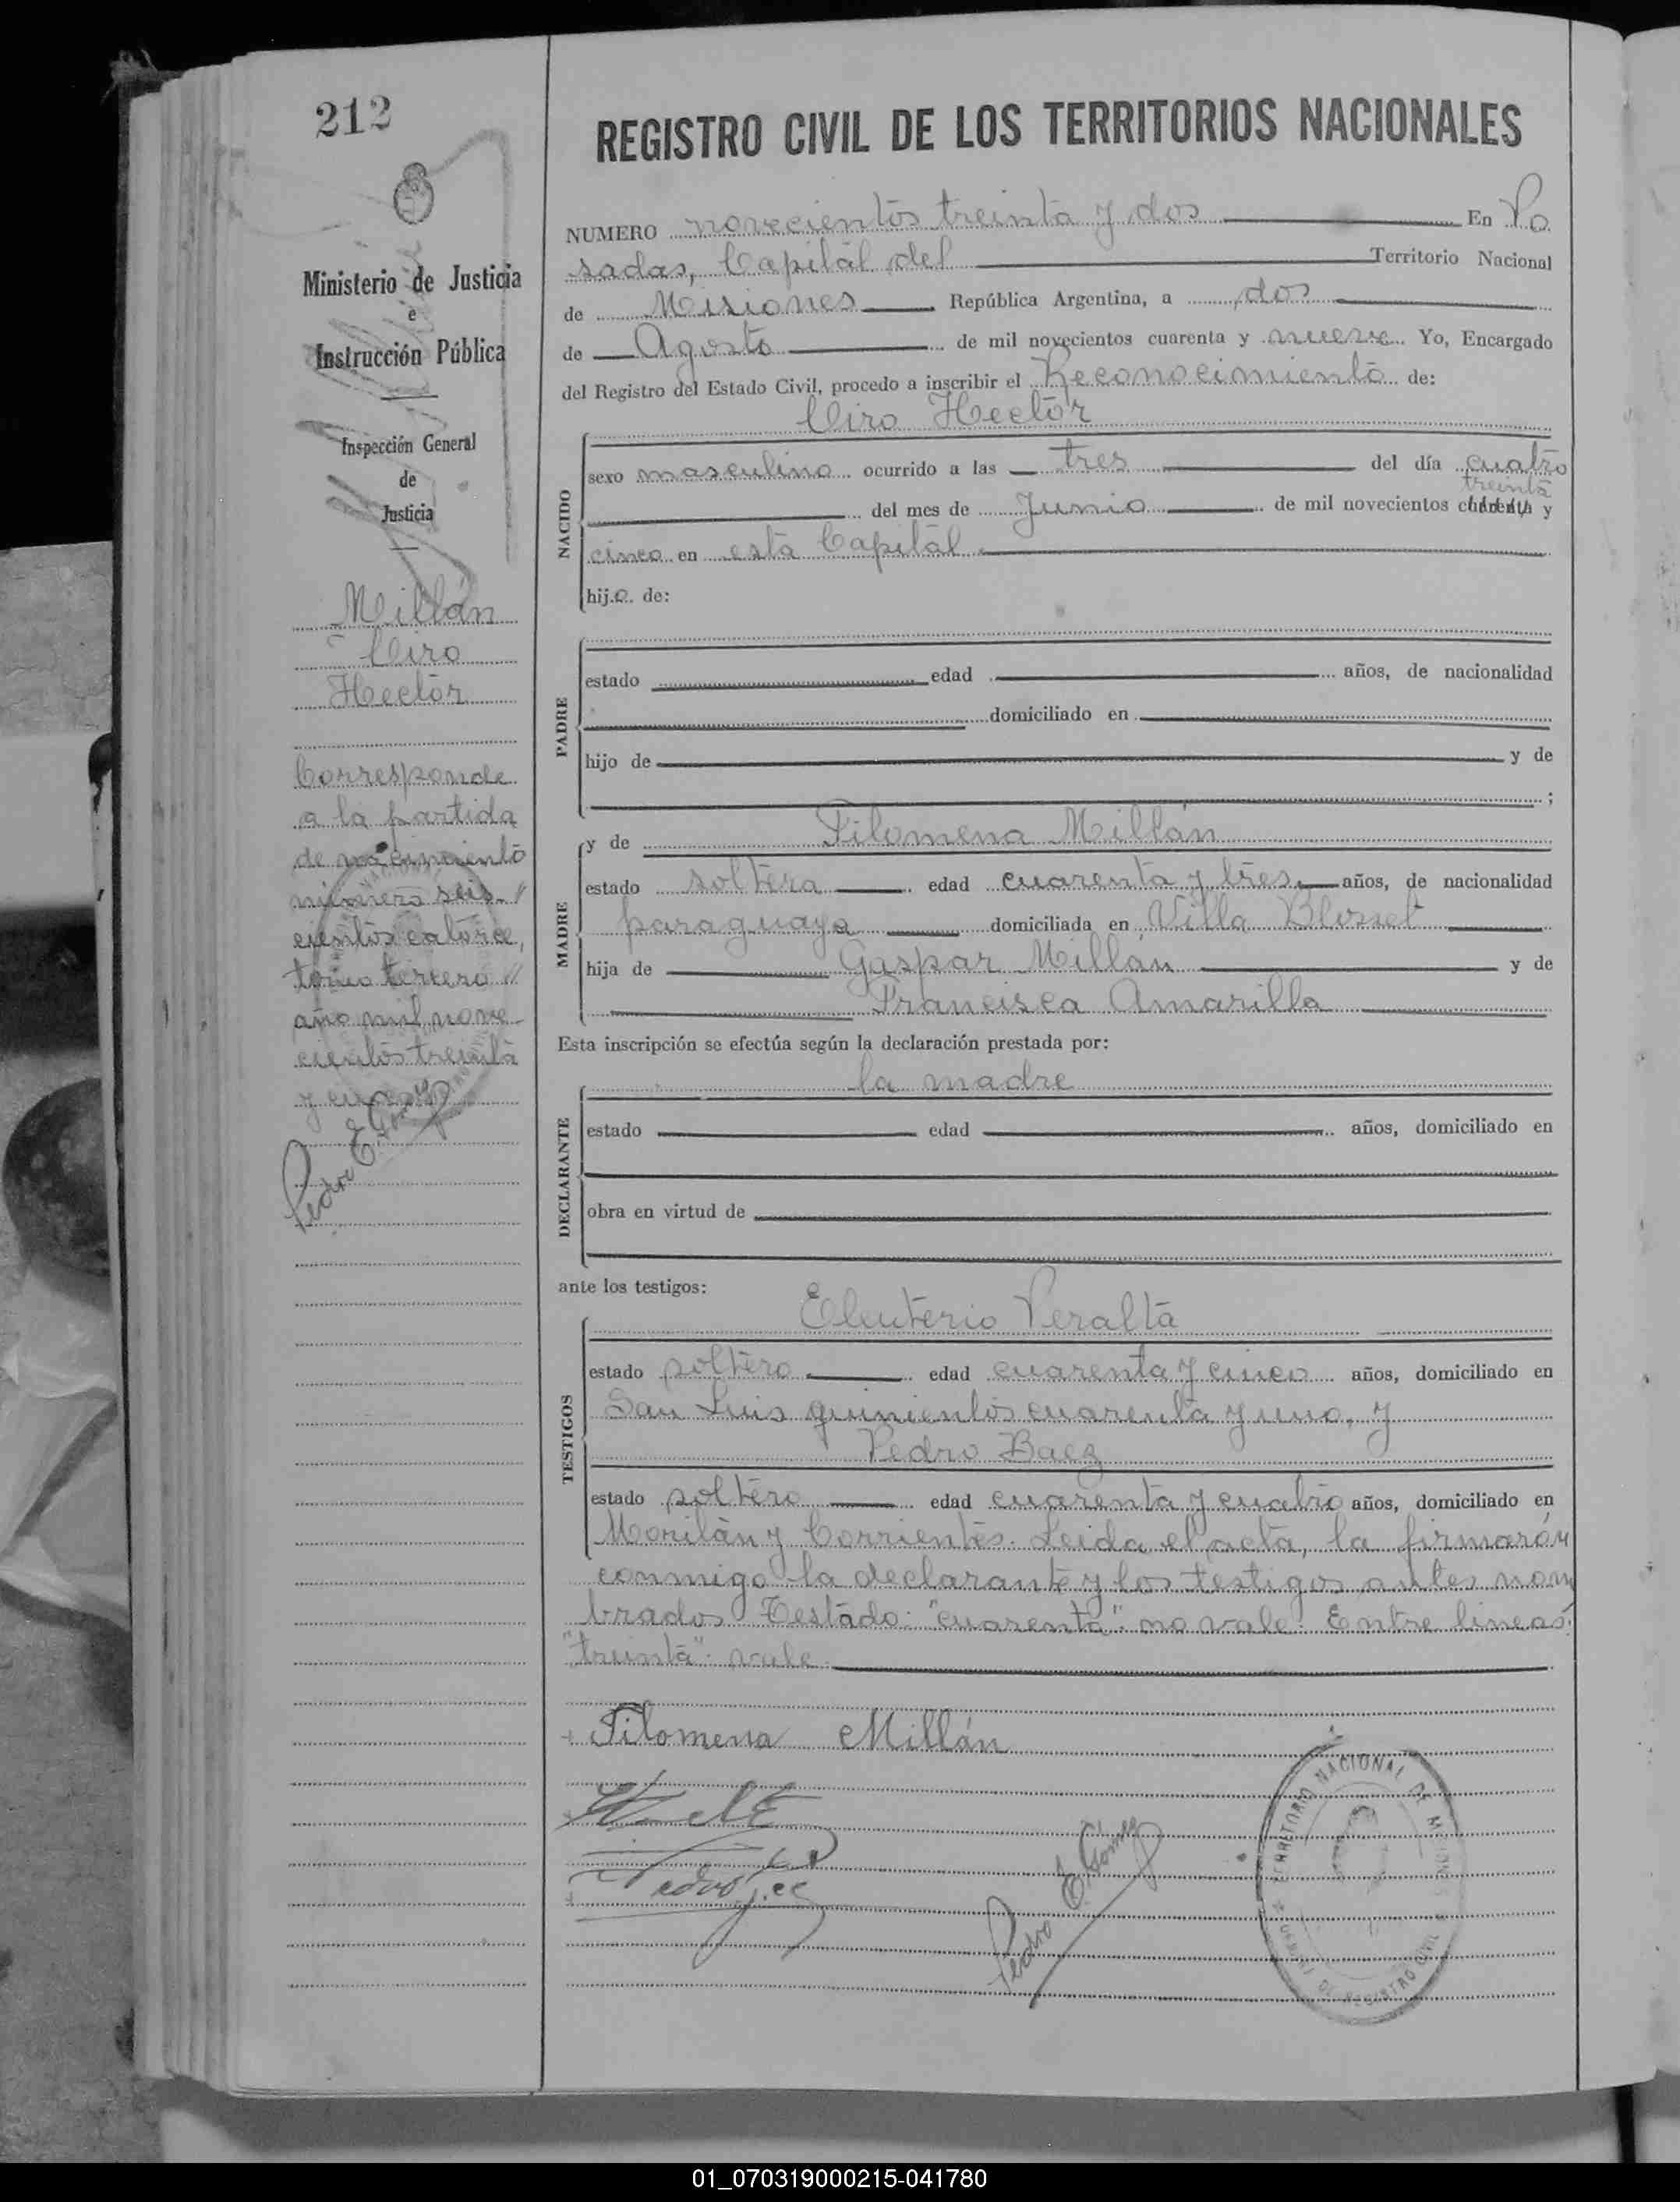 212
Ministerio de Justicia
e
Instrucción Pública
Inspección General
de
Justicia
Millán
Ciro
Hector
Corresponde
a la partida
de nacimiento
número seis-//
cientos catorce,
tomo tercero //
año mil nove-
cientos treinta
y cinco
Pedro E. Gómez
REGISTRO CIVIL DE LOS TERRITORIOS NACIONALES
NUMERO novecientos treinta y dos En Po
sadas, Capital del Territorio Nacional
de Misiones República Argentina, a dos
de Agosto de mil novecientos cuarenta y nueve Yo, Encargado
del Registro del Estado Civil, procedo a inscribir el Reconocimiento de:
Ciro Hector
NACIDO
sexo masculino ocurrido a las tres del día cuatro
treinta
del mes de Junio de mil novecientos cuarenta y
cinco en esta Capital
hijo de:
PADRE
estado edad años, de nacionalidad
domiciliado en
hijo de y de
;
MADRE
y de Filomena Millán
estado soltera edad cuarenta y tres años, de nacionalidad
paraguaya domiciliada en Villa Blosset
hija de Gaspar Millán y de
Francisca Amarilla
Esta inscripción se efectúa según la declaración prestada por:
la madre
DECLARANTE
estado edad años, domiciliado en
obra en virtud de
ante los testigos:
Eleuterio Peralta
TESTIGOS
estado soltero edad cuarenta y cinco años, domiciliado en
San Luis quinientos cuarenta y uno, y
Pedro Baez
estado soltero edad cuarenta y cuatro años, domiciliado en
y Corrientes. Leida el acta, la firmarón
conmigo la declarante y los testigos antes nom
brados Testado: "cuarenta": no vale. Entre lineas:
"treinta": vale.
Filomena Millán
Pedro E. Gómez
TERRITORIO NACIONAL DE MISIONES
REGISTRO CIVIL
01_070319000215-041780